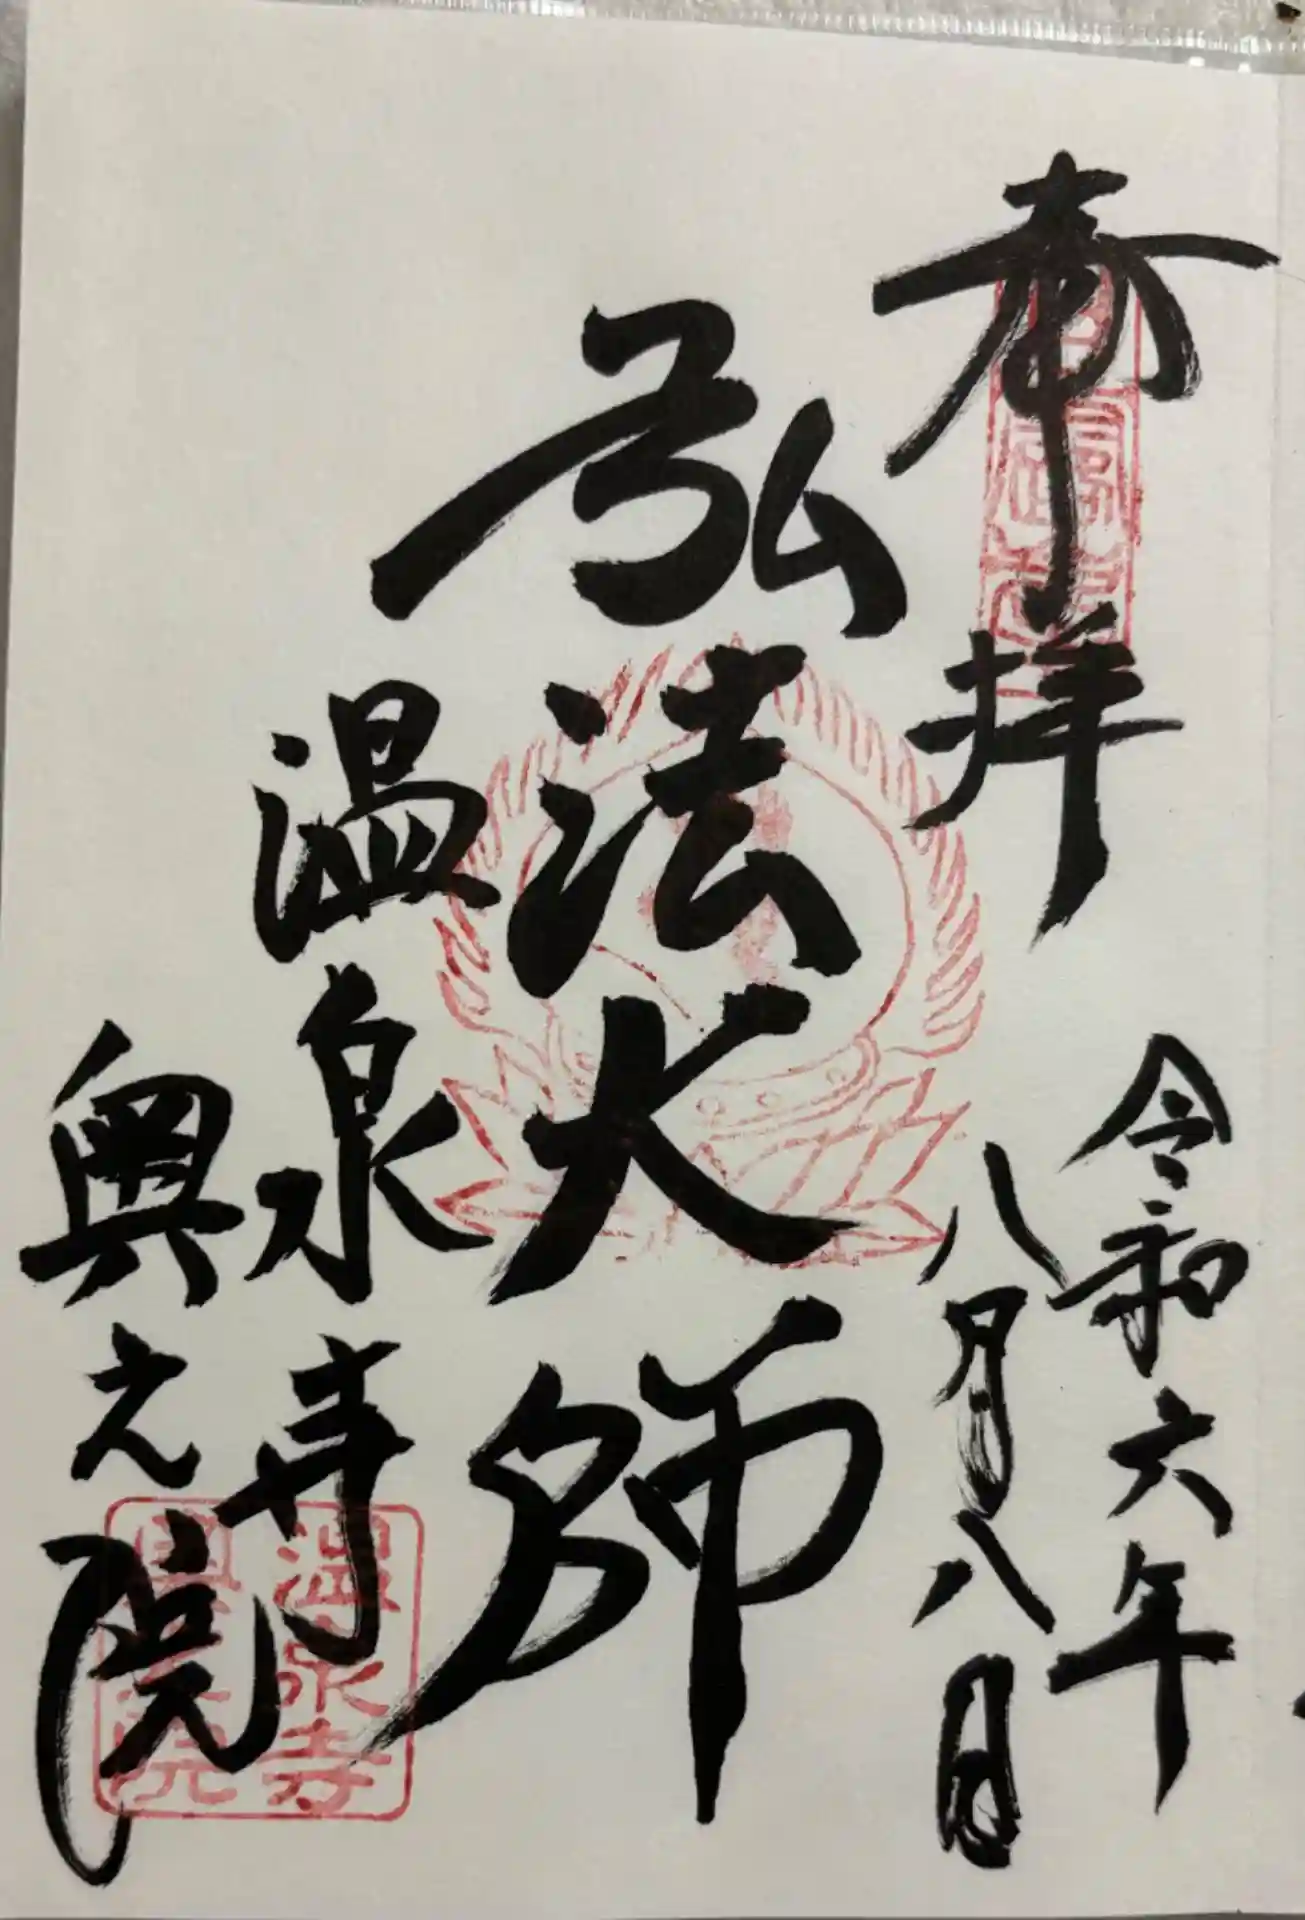 奉拝
令和六年
八月八日
弘法大師
温泉寺
奥之院
温泉寺
奥之院